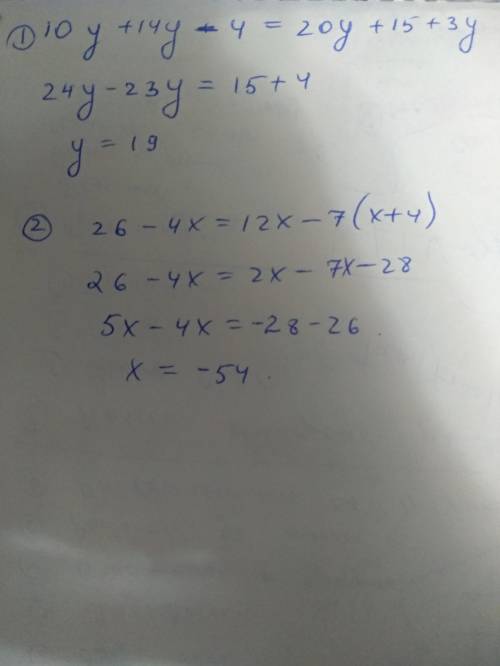 ① 10y + 14y - 4 = 20y + 15 + 3y
24y - 23y = 15 + 4
y = 19
② 26 - 4x = 12x - 7(x+4)
26 - 4x = 2x - 7x - 28
5x - 4x = -28 - 26.
x = -54.